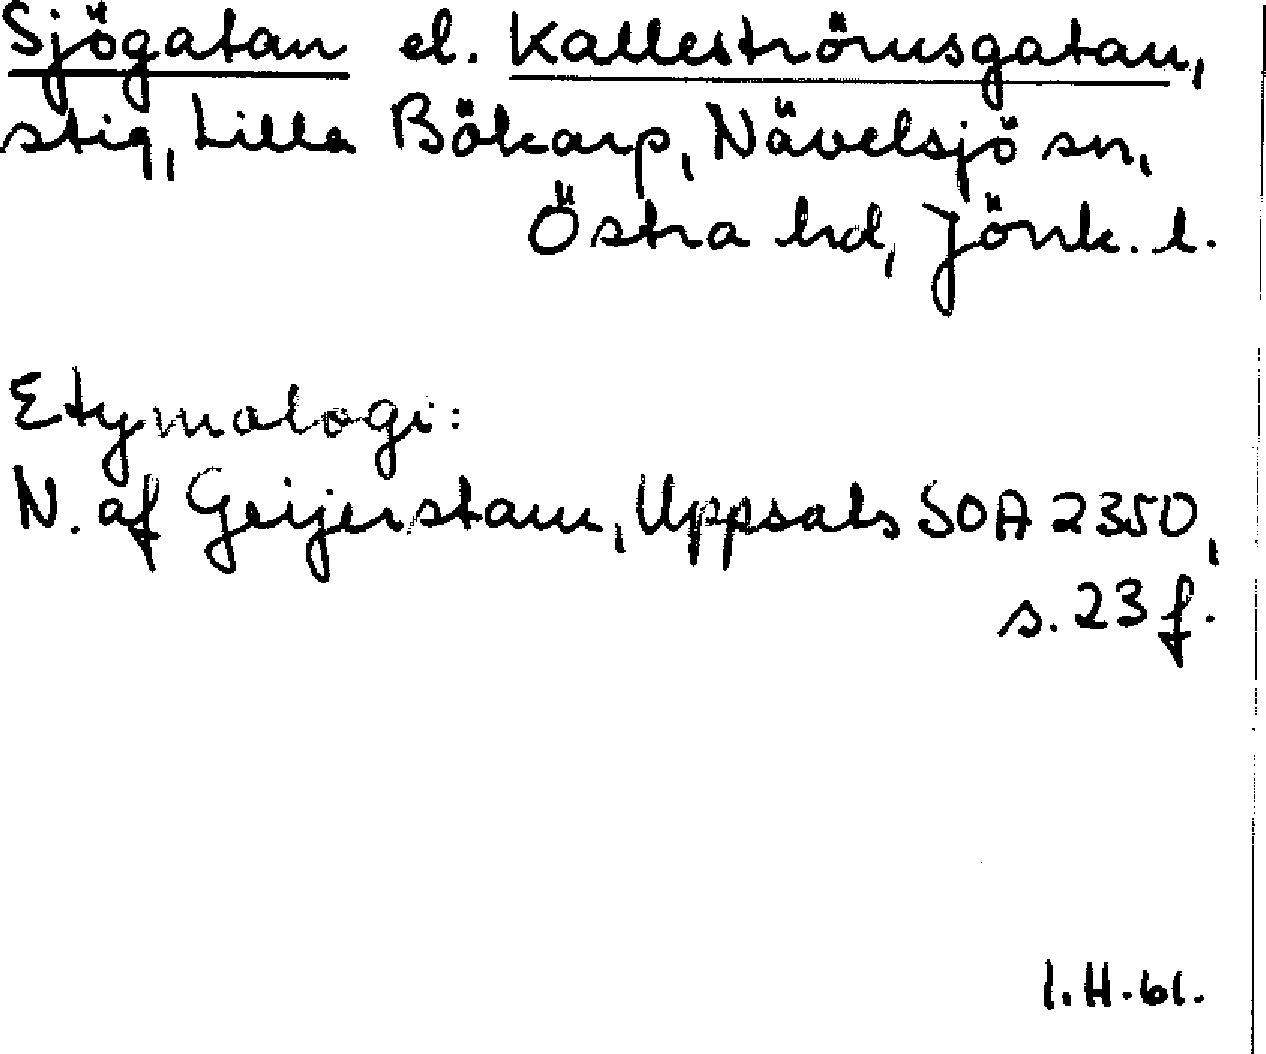 Sjögatan el. Kalleströmsgatan,
stig, Lilla Bökarp, Nävelsjö sn,
Östra hd, Jönk. l.
Etymologi:
N. af Geijerstam, Uppsals SOA 2350,
s. 23 f.
I.H.61.